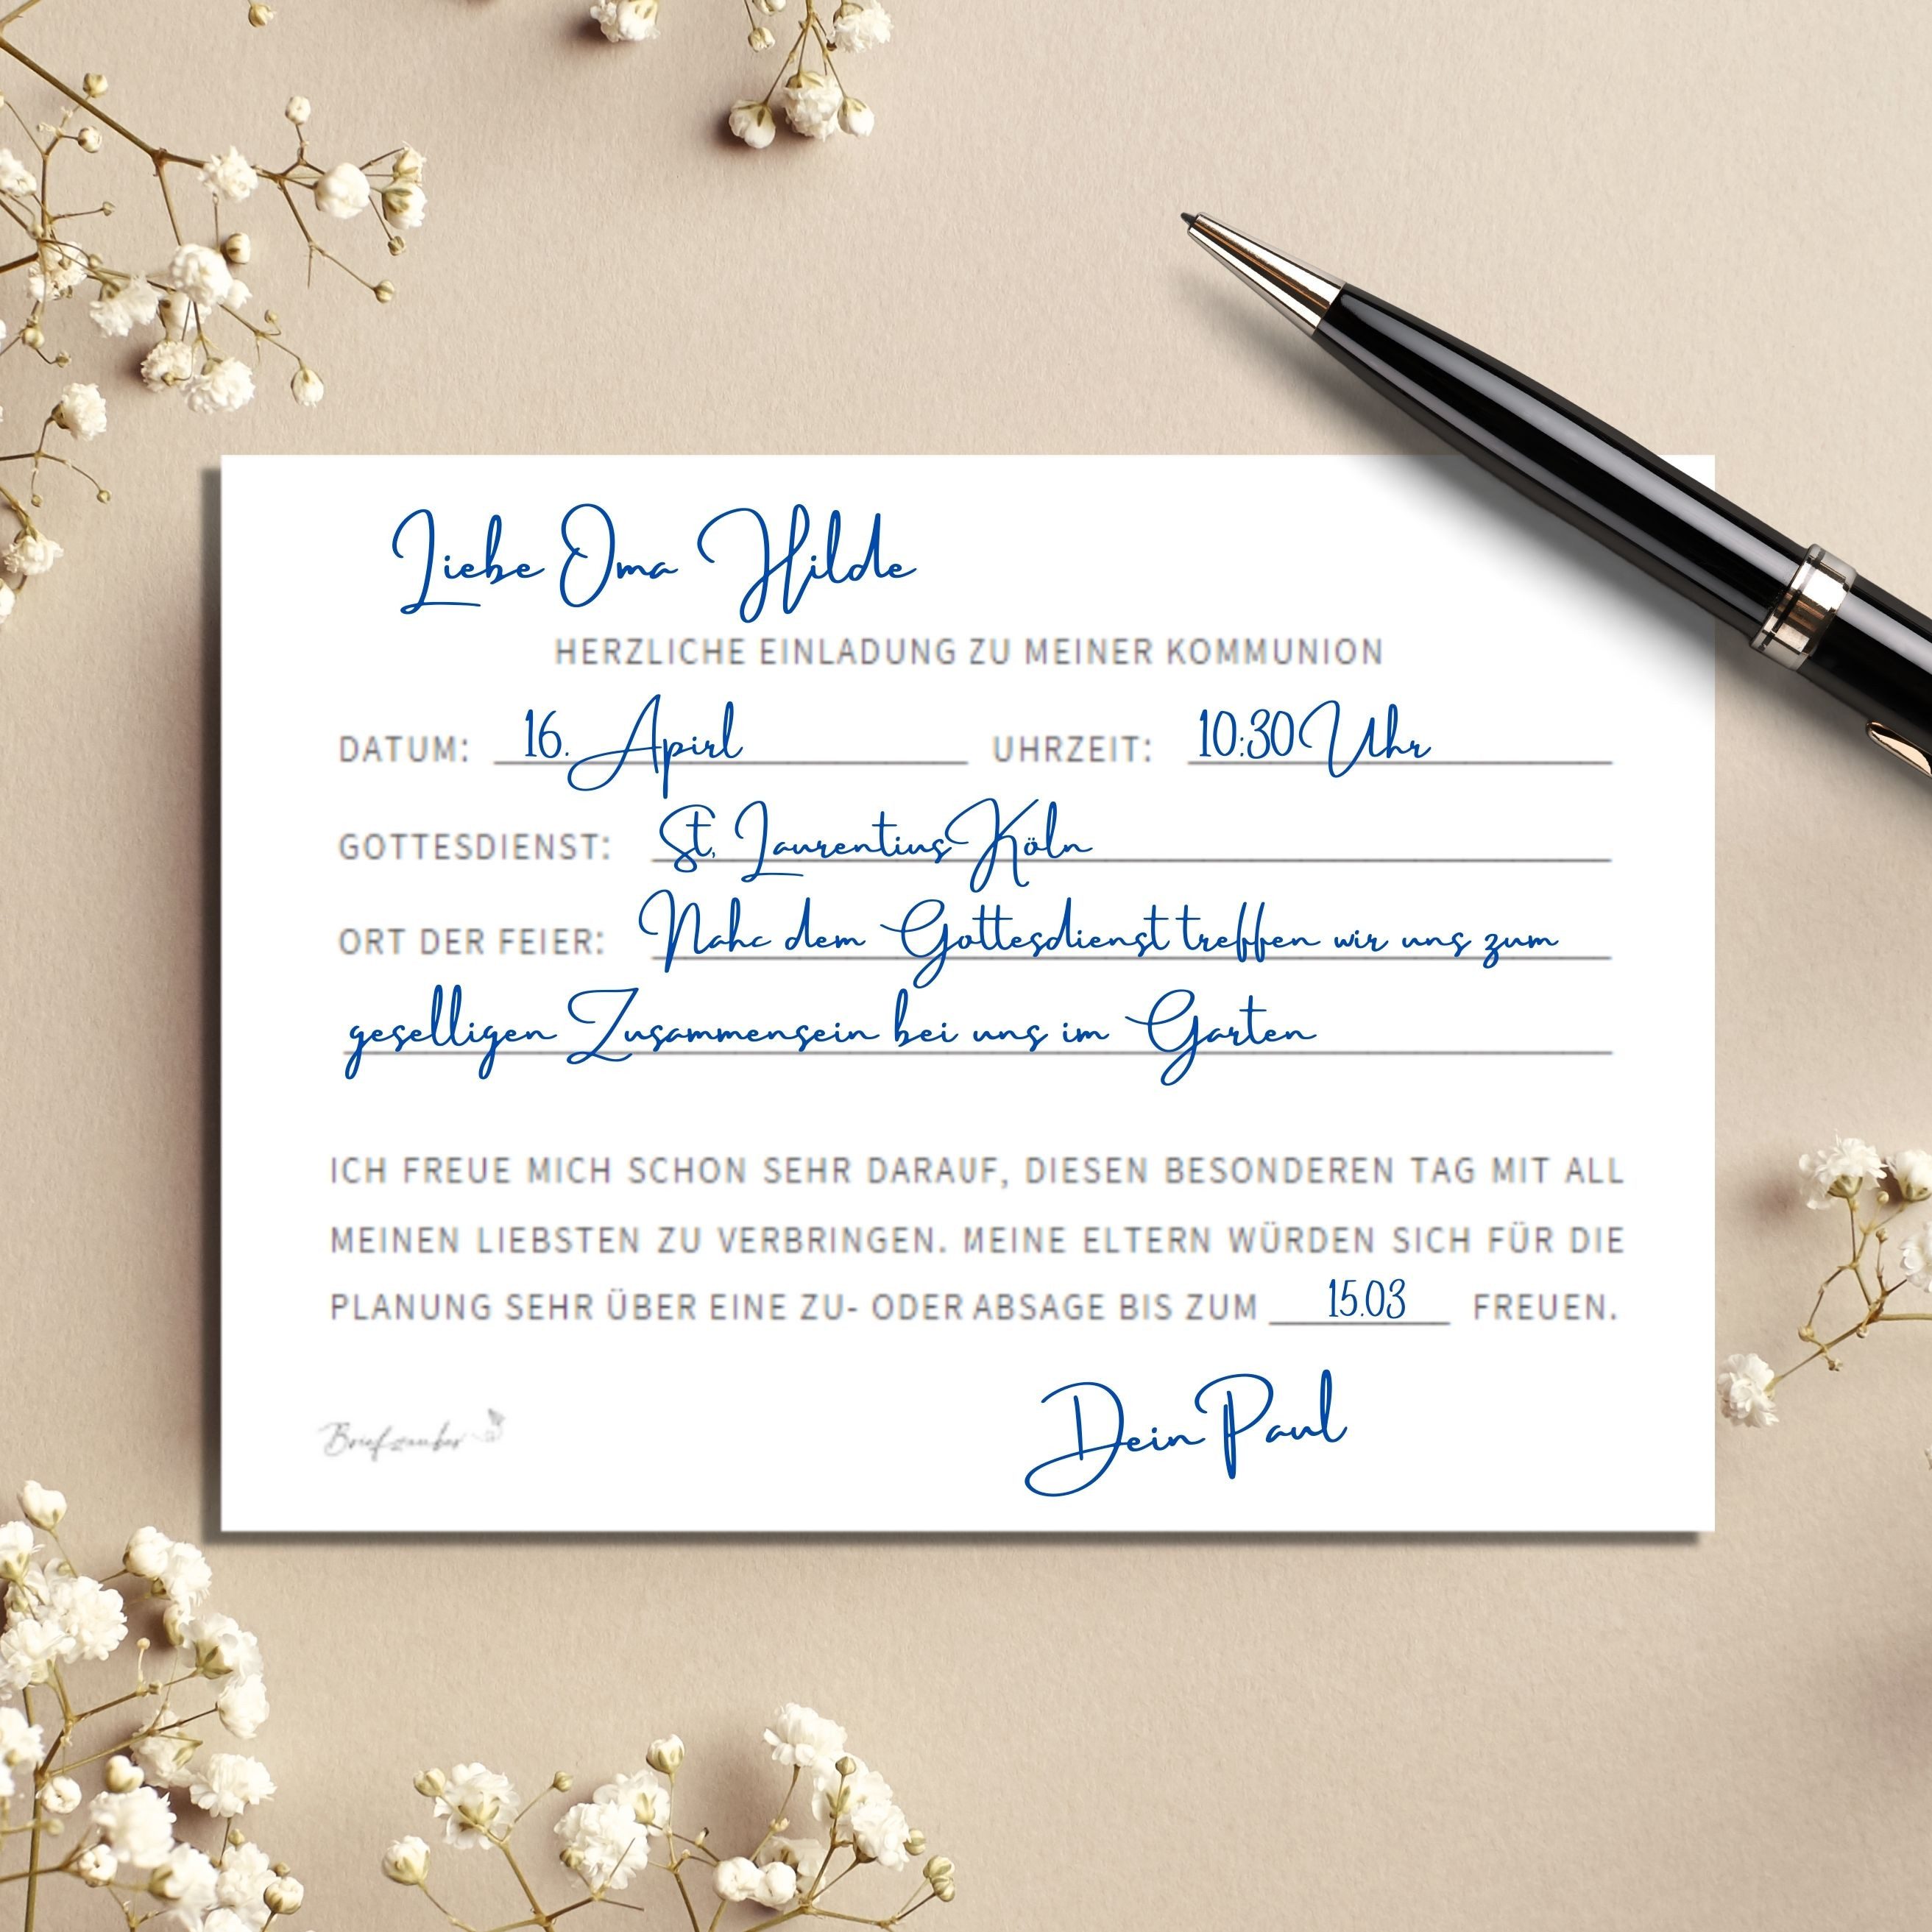 Liebe Oma Hilde
HERZLICHE EINLADUNG ZU MEINER KOMMUNION
DATUM: 16. Apirl UHRZEIT: 10:30 Uhr
GOTTESDIENST: St. Laurentius Köln
ORT DER FEIER: Nahc dem Gottesdienst treffen wir uns zum
geselligen Zusammensein bei uns im Garten
ICH FREUE MICH SCHON SEHR DARAUF, DIESEN BESONDEREN TAG MIT ALL
MEINEN LIEBSTEN ZU VERBRINGEN. MEINE ELTERN WÜRDEN SICH FÜR DIE
PLANUNG SEHR ÜBER EINE ZU- ODER ABSAGE BIS ZUM 15.03 FREUEN.
Dein Paul
Briefzauber